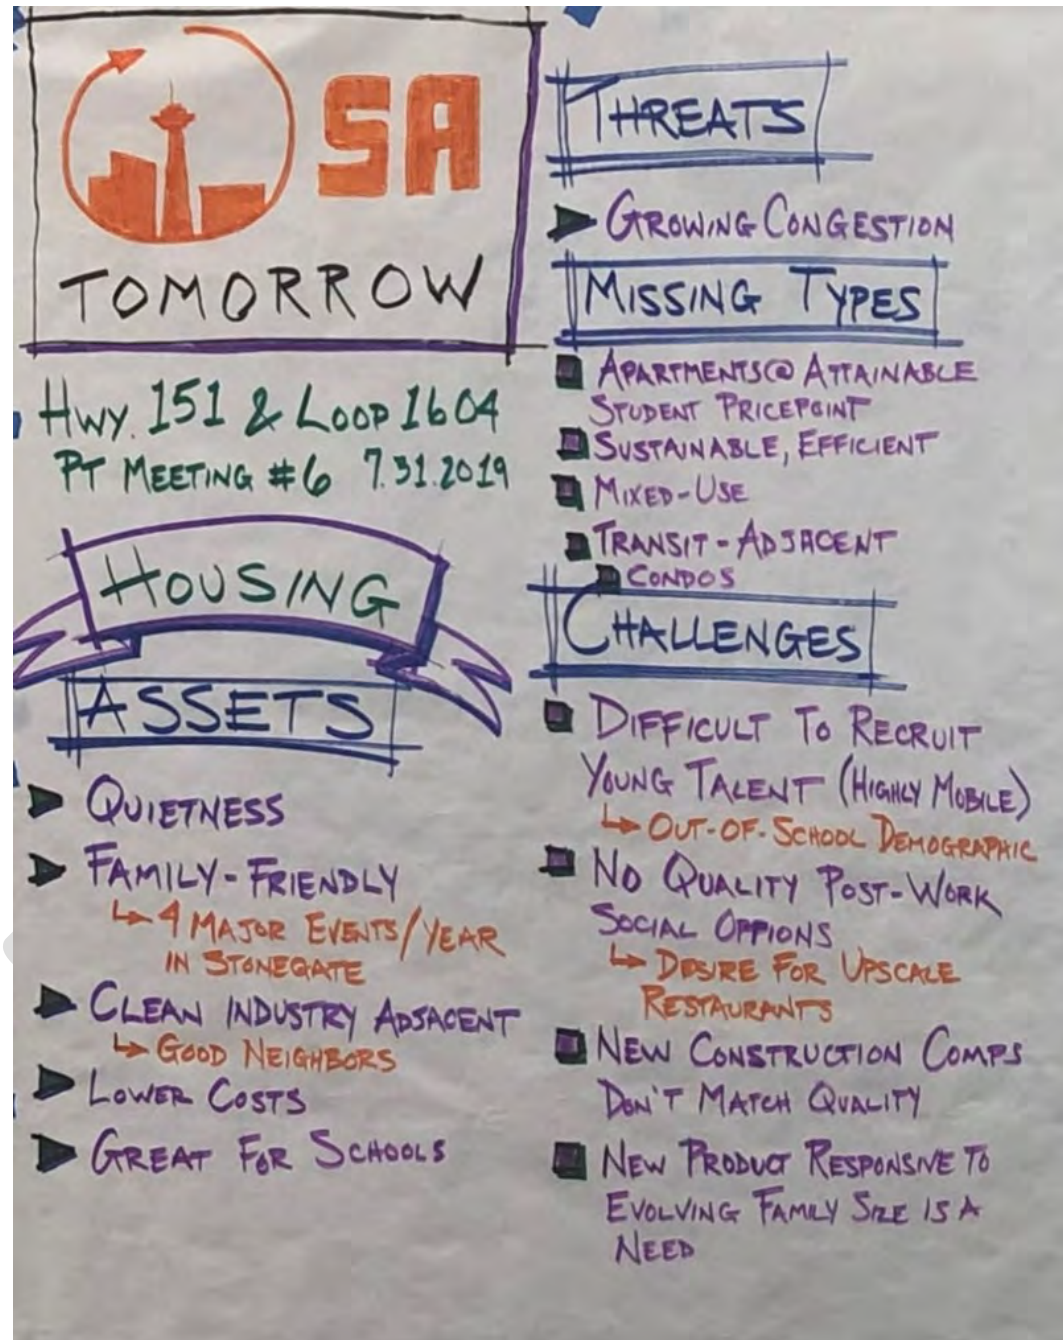 SA
TOMORROW
HWY. 151 & LOOP 1604
PT MEETING #6 7.31.2019
HOUSING
ASSETS
QUIETNESS
FAMILY-FRIENDLY
↳ 4 MAJOR EVENTS/YEAR
IN STONEGATE
CLEAN INDUSTRY ADJACENT
↳ GOOD NEIGHBORS
LOWER COSTS
GREAT FOR SCHOOLS
THREATS
GROWING CONGESTION
MISSING TYPES
APARTMENTS @ ATTAINABLE
STUDENT PRICEPOINT
SUSTAINABLE, EFFICIENT
MIXED-USE
TRANSIT-ADJACENT
CONDOS
CHALLENGES
DIFFICULT TO RECRUIT
YOUNG TALENT (HIGHLY MOBILE)
↳ OUT-OF-SCHOOL DEMOGRAPHIC
NO QUALITY POST-WORK
SOCIAL OPPIONS
↳ DESIRE FOR UPSCALE
RESTAURANTS
NEW CONSTRUCTION COMPS
DON'T MATCH QUALITY
NEW PRODUCT RESPONSIVE TO
EVOLVING FAMILY SIZE IS A
NEED